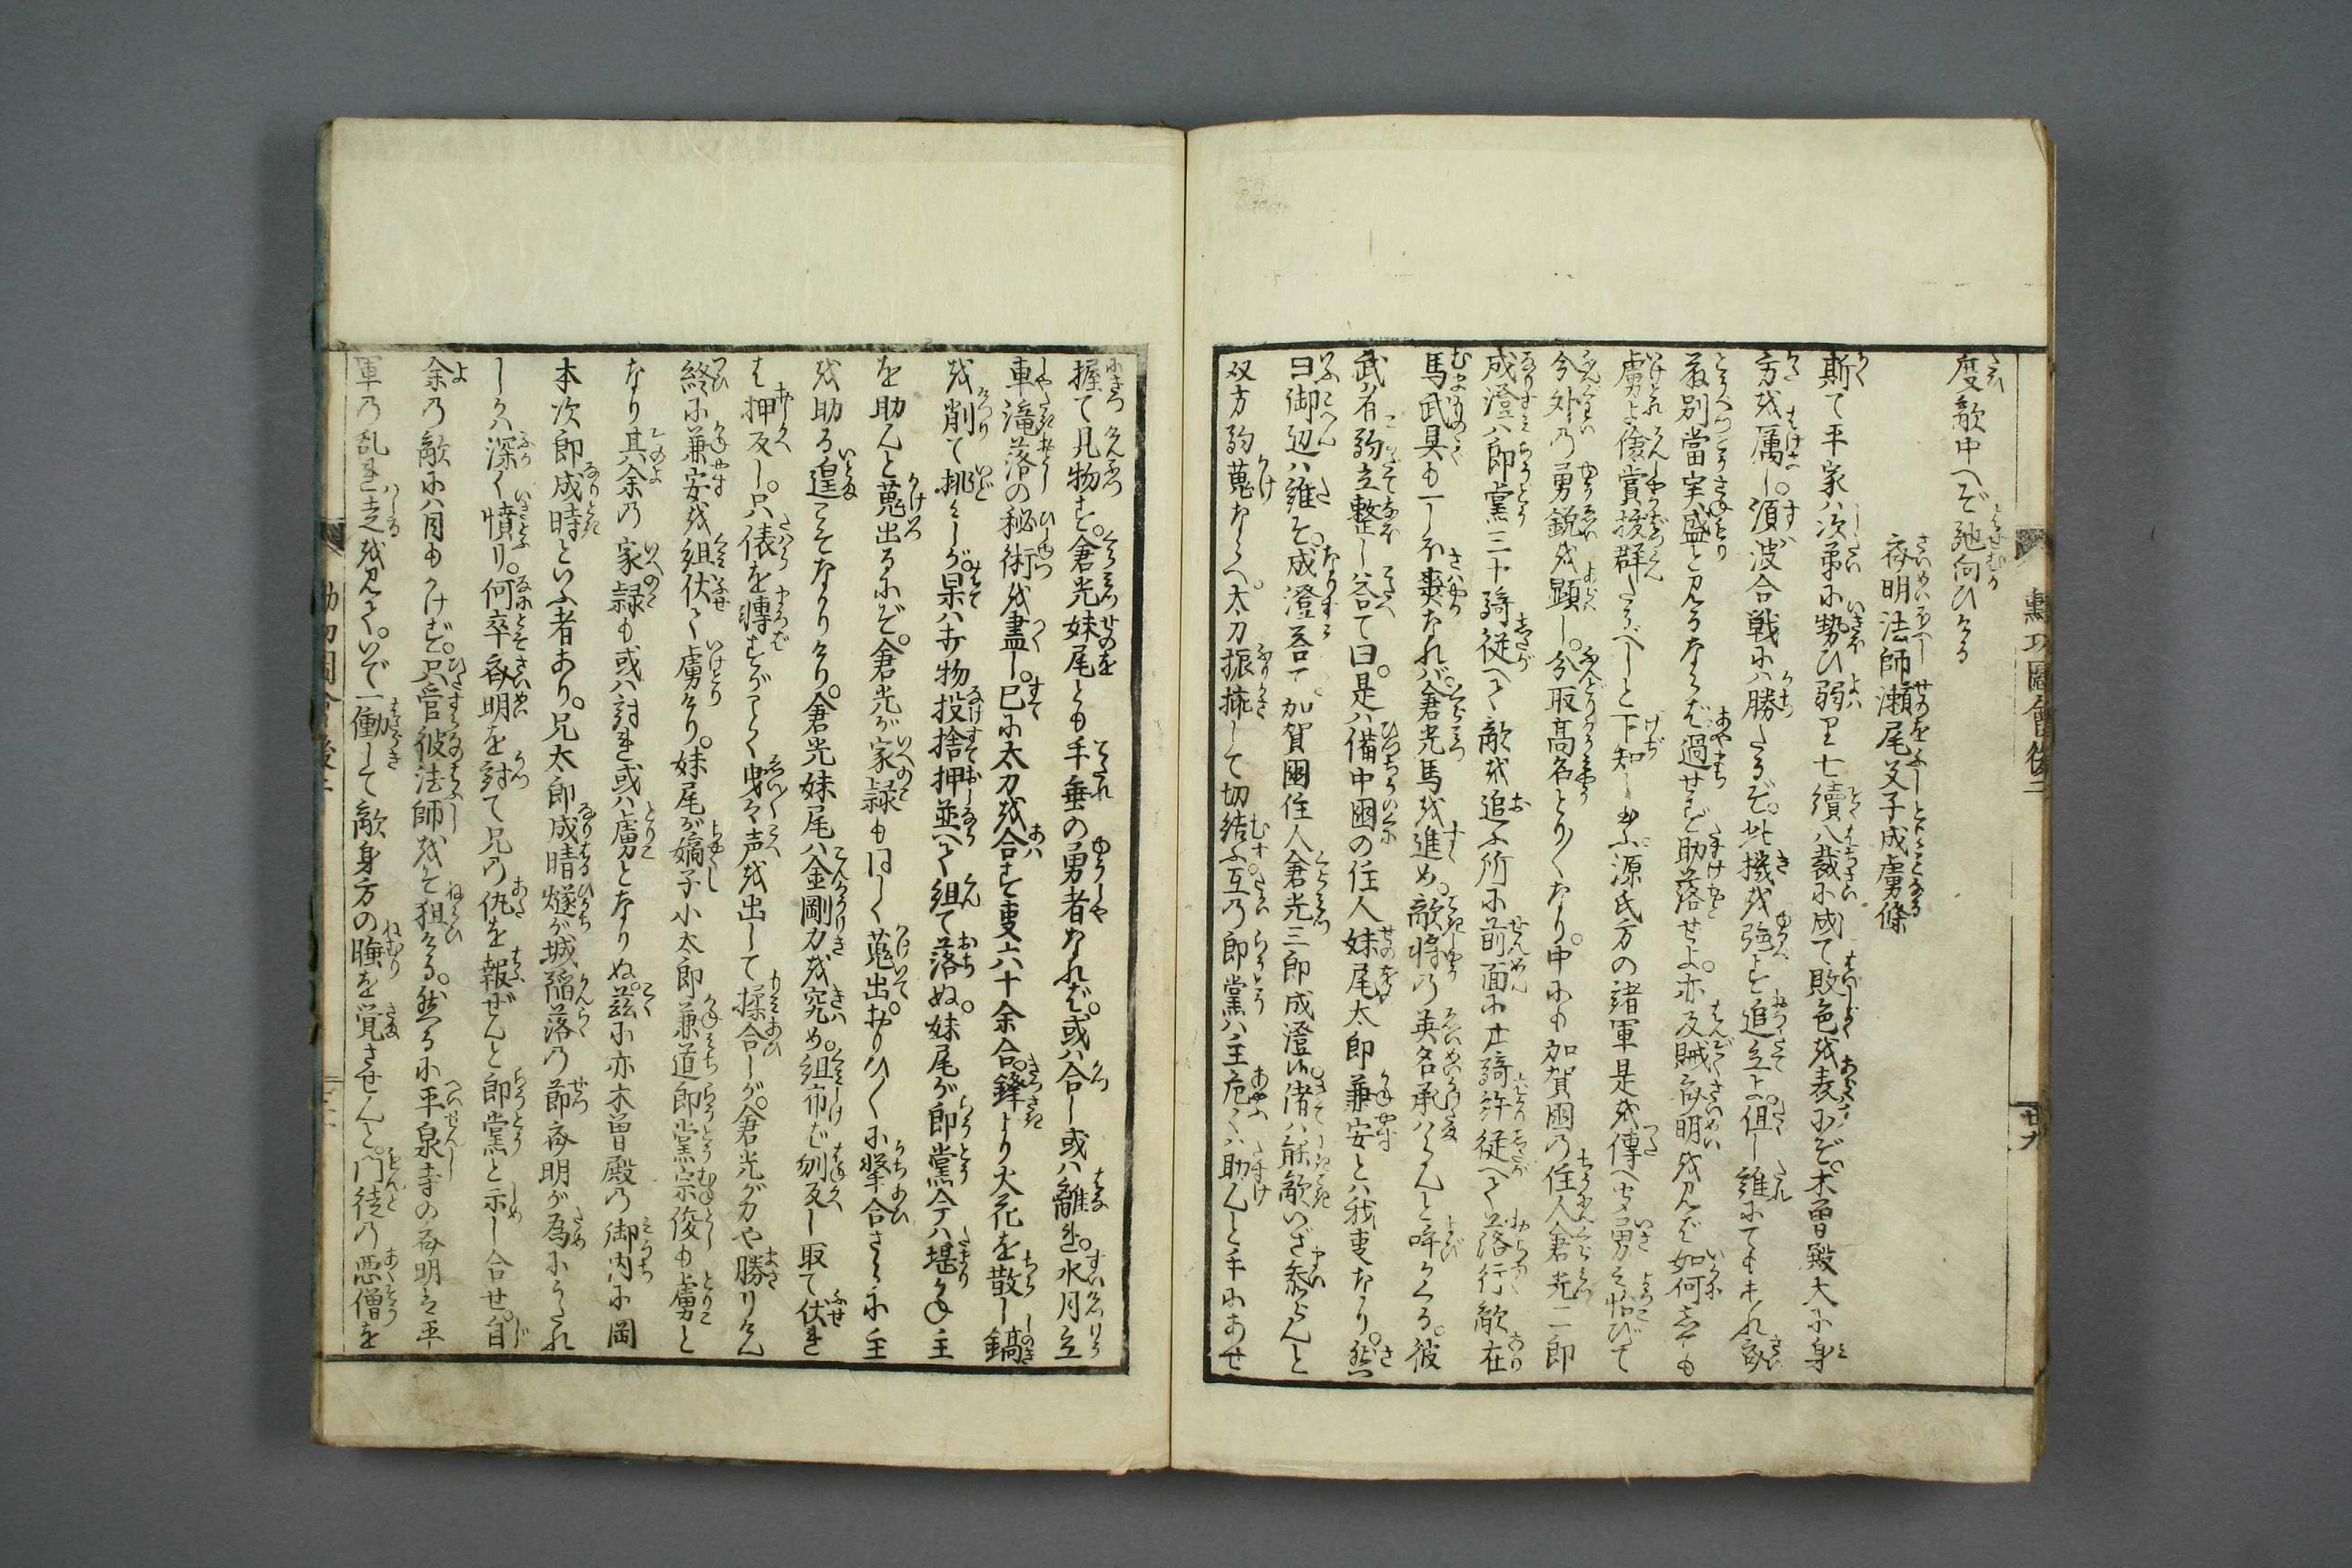 度敵中へぞ馳向ひける
斎明法師瀬尾父子成虜條
斯て平家ハ次第に勢ひ弱リ七續八裂に成て敗色を表にぞ。木曽殿大に身
方を属し。須波合戦に勝たるぞ。此機を強よ追立よ。但し誰にてもあれ斎
藤別當実盛と見るならば過せず助落せよ。亦反賊斎明を見ば如何にも
虜よ儻賞抜群たるべしと下知し給ふ。源氏方の諸軍是を傳へ皆勇ミ悦びて
今外の勇鋭を顕し。分取高名とり〴〵なり。中にも加賀国の住人倉光二郎
成澄ハ郎黨三十騎従へて敵を追ふ所に前面に廿騎許従へて落行敵在
馬武具も一しほ爽なれバ倉光馬を進め。敵将の英名承ハらんと呼かくる。彼
武者駒立整し答て曰。是ハ備中國の住人妹尾太郎兼安とハ我事なり。然
曰御辺ハ誰そ。成澄答て。加賀國住人倉光三郎成澄候。偖ハ能敵いざ参らんと
双方駒蒐ならべ。太刀振抜して切結ふ。互の郎黨ハ主危くハ助んと手にあせ
握て見物す。倉光妹尾とも手垂の勇者なれば。或ハ合し或ハ離れ。水月立
車滝落の秘術を盡し。已に太刀を合す事六十余合。鋒より火花を散し鎬
を削て挑ミしが。果ハ打物投捨押並べて組て落ぬ。妹尾が郎黨今ハ堪かね主
を助んと蒐出るにぞ。倉光が家隷も同しく蒐出。おりひしくに撃合さらに主
を助る遑こそなかりけり。倉光妹尾ハ金剛力を究め。組布ば刎反し取て伏れ
ば押反し。只俵を轉すがごとく曳々声を出して揉合しが。倉光が力や勝りけん
終に兼安を組伏て虜けり。妹尾が嫡子小太郎兼道郎黨宗俊も虜と
なり其余の家隷も或ハ討れ或ハ虜となりぬ。茲に亦木曽殿の御内に岡
本次郎成時といふ者あり。兄太郎成晴燧が城陥落の節斎明が為にうたれ
しかハ深く憤リ。何卒斎明を討て兄の仇を報ぜんと郎黨と示し合せ。自
余の敵にハ目もかけず。只管彼法師をぞ狙ける。然るに平泉寺の斎明ハ平
軍の乱れ走を見て。いで一働して敵身方の睡を覚させんと。門徒の悪僧を
勲功圖會後二
廿九